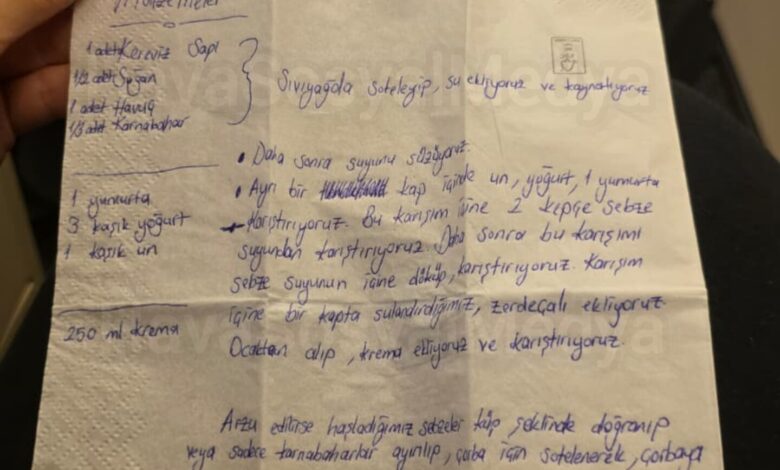 Malzemeler
1 adet Kereviz Sapı
1/2 adet Soğan
1 adet Havuç
1/3 adet Karnabahar
Sıvıyağda soteleyip, su ekliyoruz ve kaynatıyoruz
• Daha sonra suyunu süzüyoruz.
• Ayrı bir kap içinde un, yoğurt, 1 yumurta
karıştırıyoruz. Bu karışım içine 2 kepçe sebze
suyundan karıştırıyoruz. Daha sonra bu karışımı
sebze suyunun içine döküp, karıştırıyoruz. Karışım
içine bir kapta sulandırdığımız, zerdeçalı ekliyoruz
Ocaktan alıp, krema ekliyoruz ve karıştırıyoruz.
1 yumurta
3 kaşık yoğurt
1 kaşık un
250 ml krema
Arzu edilirse haşladığımız sebzeler küp şeklinde doğranıp
veya sadece karnabaharlar ayırılıp, çorba için sotelenerek, çorbaya